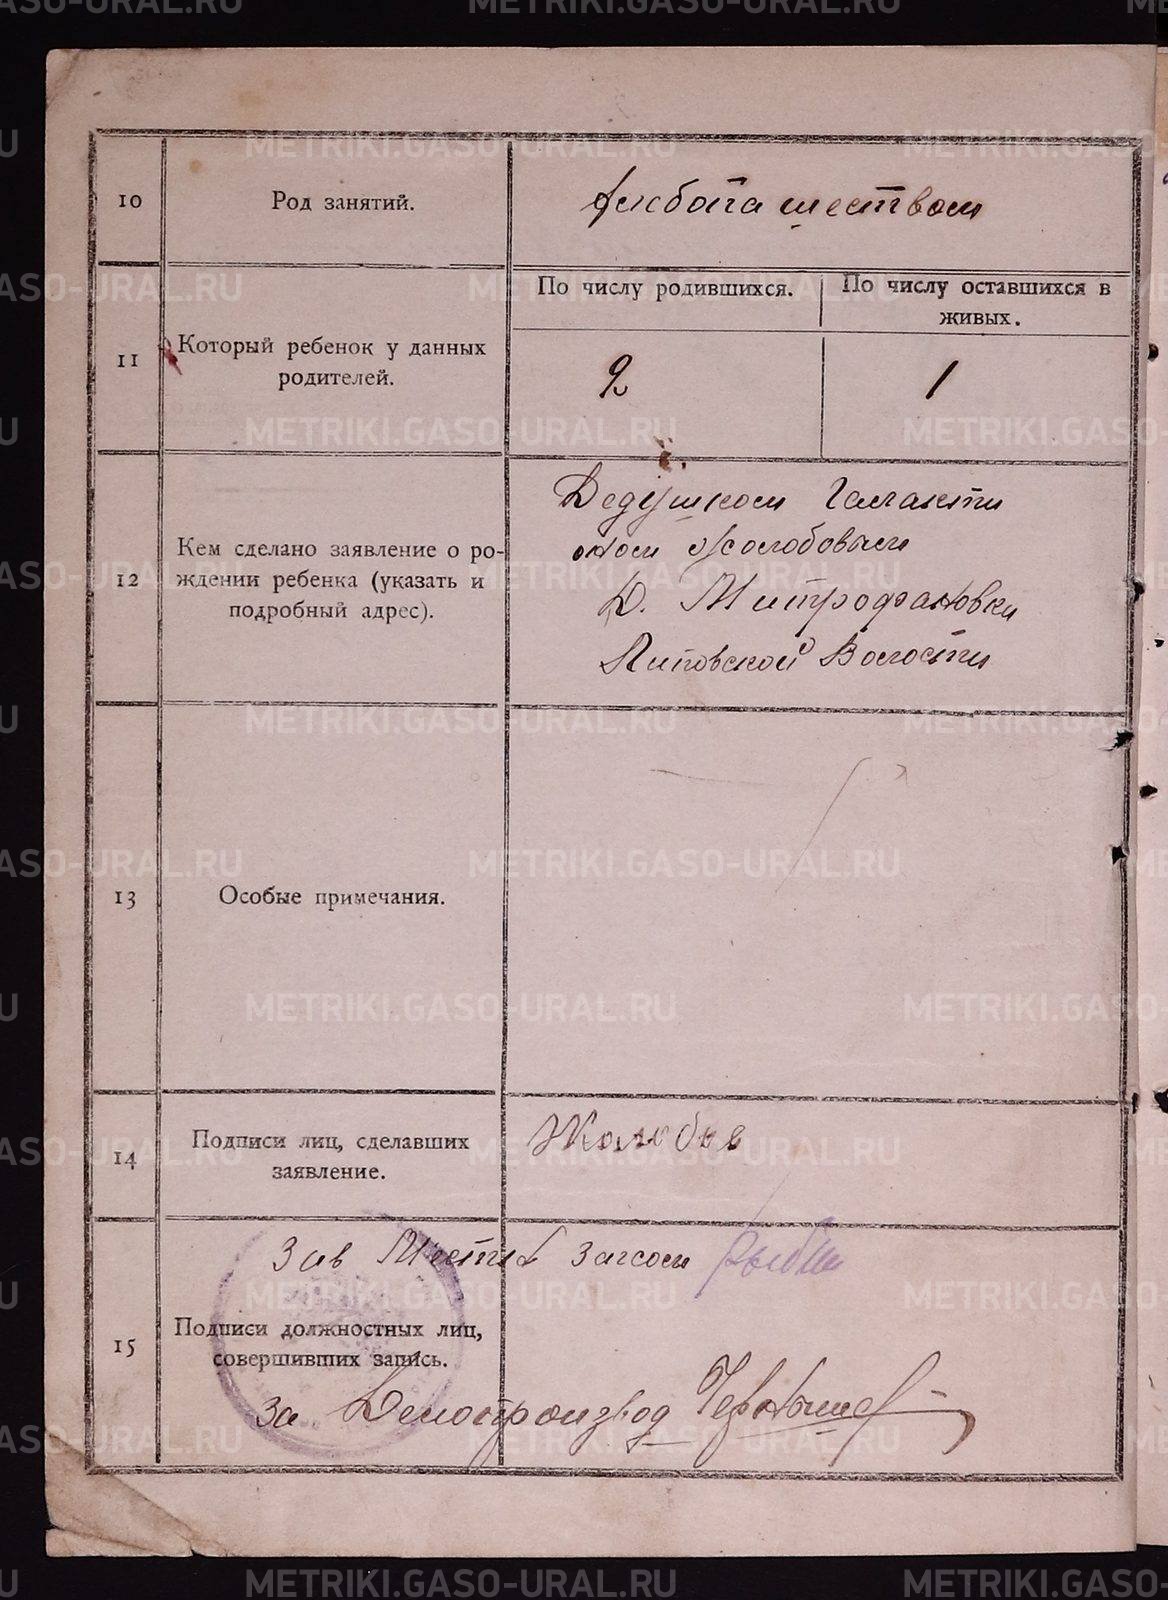 METRIKI.GASO-URAL.RU
10
Род занятий.
Хлебопашеством
11
Который ребенок у данных
родителей.
По числу родившихся.
По числу оставшихся в
живых.
2
1
12
Кем сделано заявление о ро-
ждении ребенка (указать и
подробный адрес).
Дедушком Галакти
оном Жолобовым
Д. Митрофановки
Липовской Волости
13
Особые примечания.
14
Подписи лиц, сделавших
заявление.
Жолобов
15
Зав Местн Загсом
Подписи должностных лиц,
совершивших запись.
За Делопроизвод Чернышев